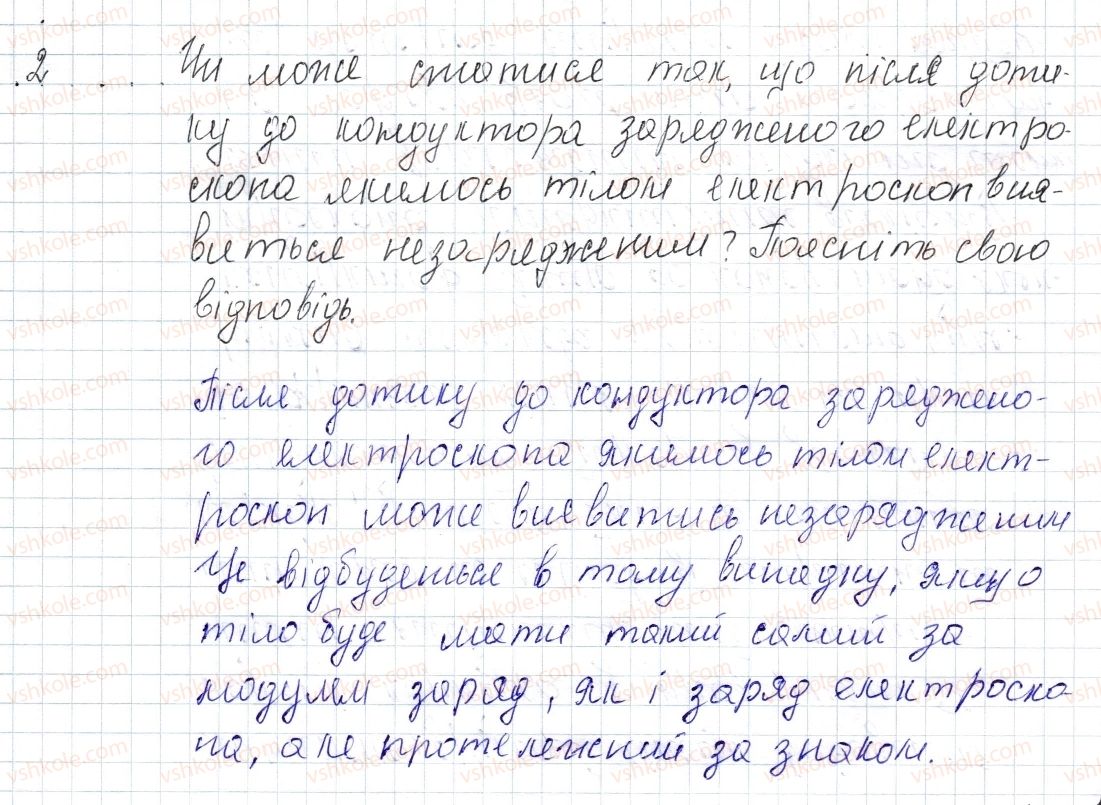 2 Чи може статися так, що після доти-
ку до кондуктора зарядженого електро-
скопа якимось тілом електроскоп вия-
виться незарядженим? Поясніть свою
відповідь.
Після дотику до кондуктора заряджено-
го електроскопа якимось тілом елект-
роскоп може виявитись незарядженим
Це відбудеться в тому випадку, якщо
тіло буде мати такий самий за
модулем заряд, як і заряд електроско-
па, але протележний за знаком.